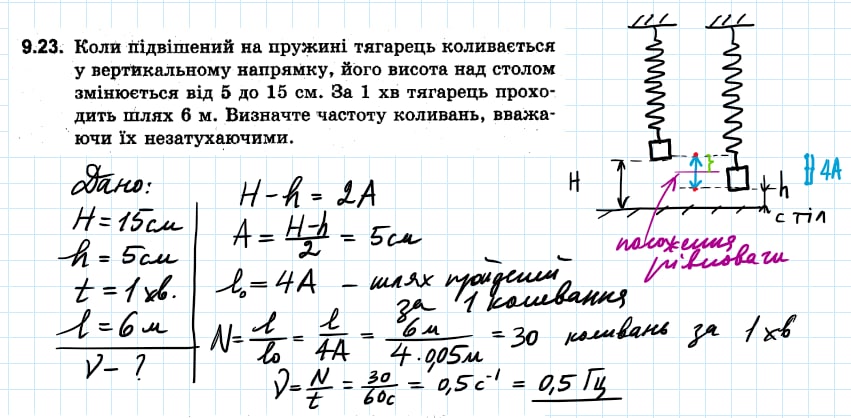 9.23. Коли підвішений на пружині тягарець коливається
у вертикальному напрямку, його висота над столом
змінюється від 5 до 15 см. За 1 хв тягарець прохо-
дить шлях 6 м. Визначте частоту коливань, вважа-
ючи їх незатухаючими.
Дано:
H = 15см
h = 5см
t = 1хв.
l = 6м
ν - ?
H - h = 2A
A = (H-h)/2 = 5см
l₀ = 4A - шлях пройдений
за 1 коливання
N = l/l₀ = l/4A = 6м/(4·0,05м) = 30 коливань за 1хв
ν = N/t = 30/60с = 0,5с⁻¹ = 0,5 Гц
H
h
4A
стіл
положення
рівноваги